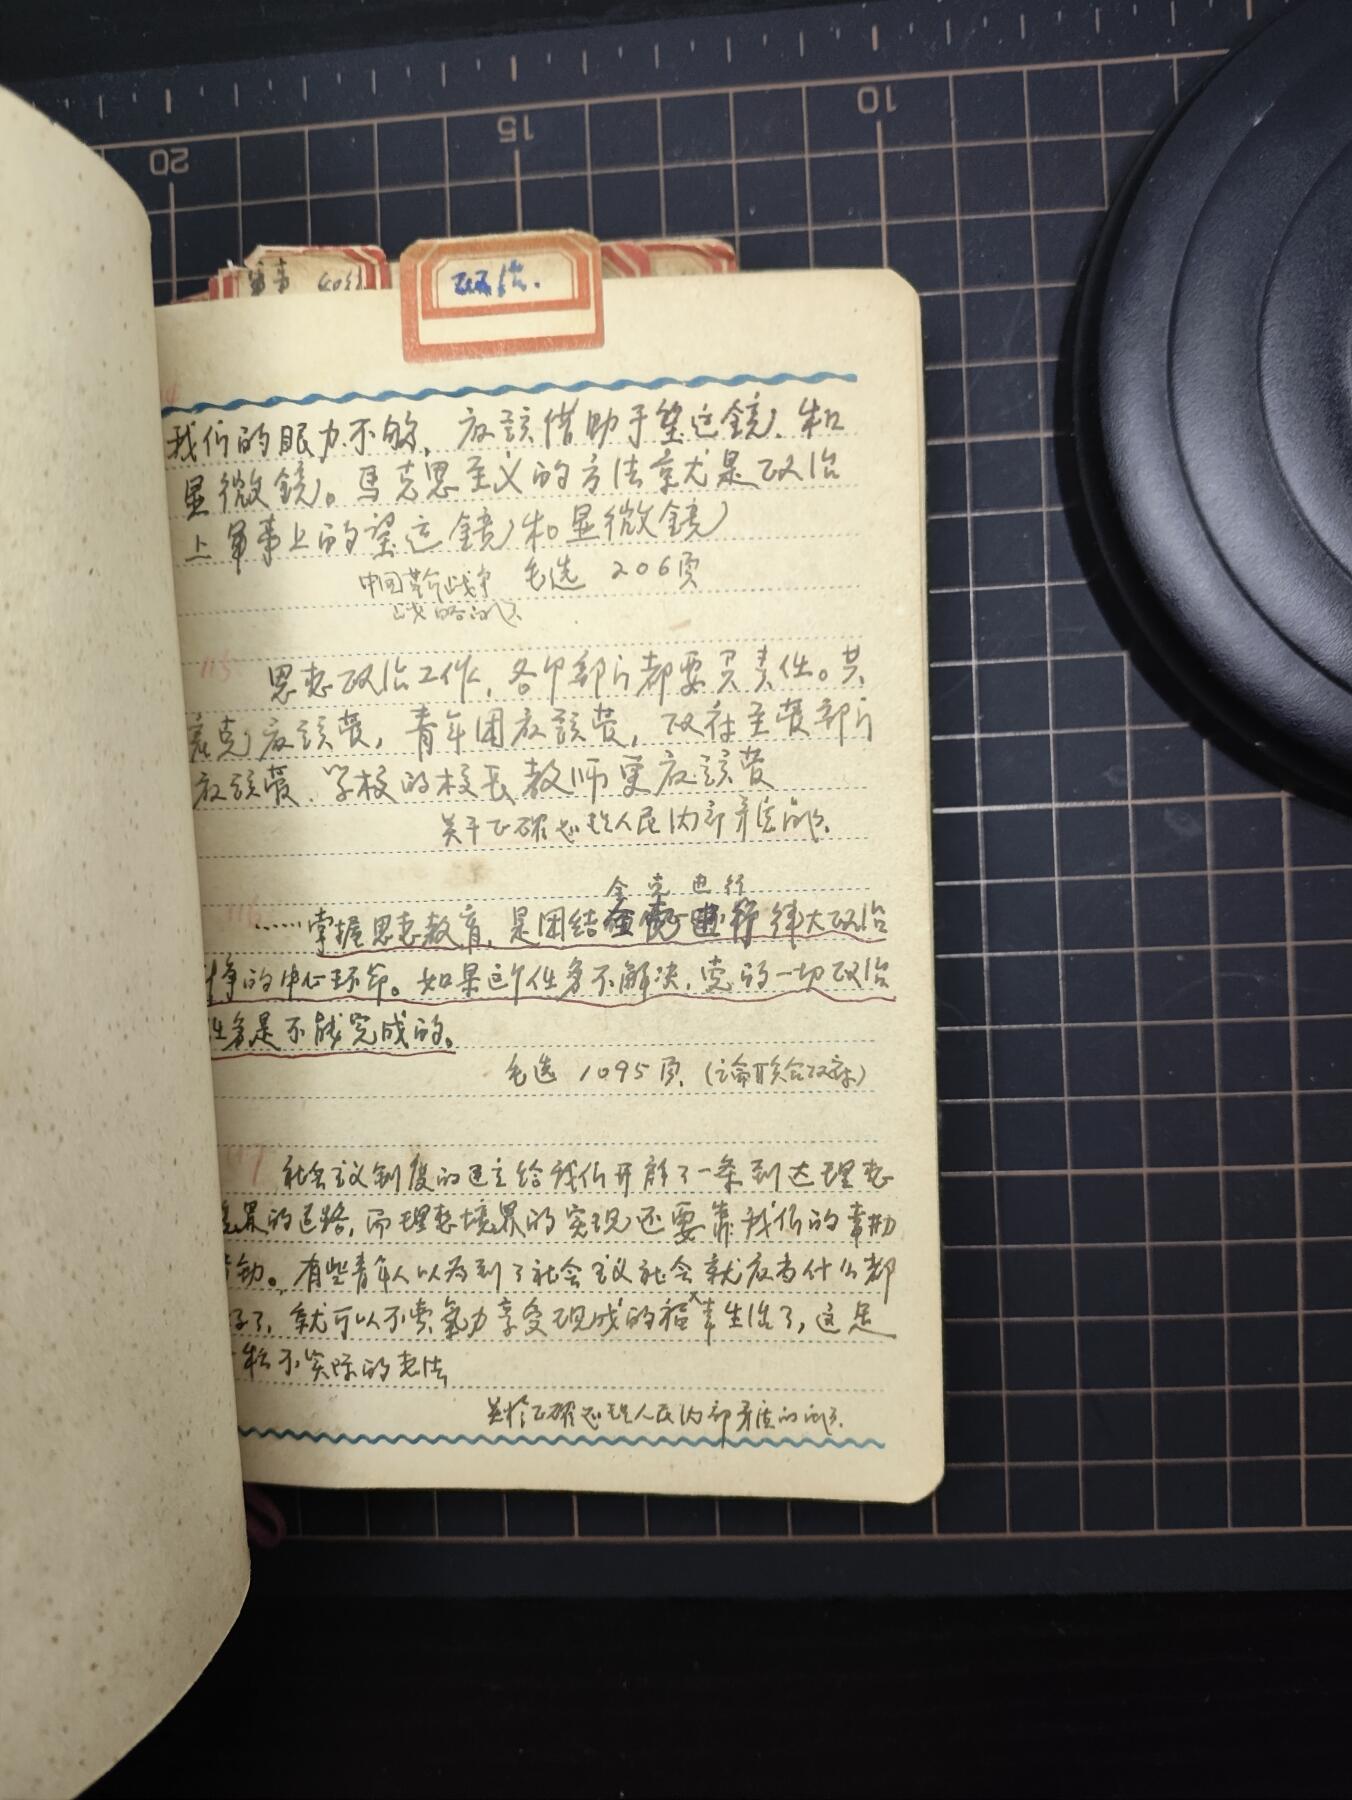 20 15 10
军事
政治.
我们的眼力不够, 应該借助于望远鏡, 和
显微鏡。馬克思主义的方法就尤是政治
上軍事上的望远鏡和显微鏡
中国革命战争 毛选 206页
战略问题
115 思想政治工作, 各个部门都要负责任。共
产党应該管, 青年团应該管, 政府主管部门
应該管, 学校的校长教师更应該管
关于正確处理人民内部矛盾的问题
全党进行
116 ……掌握思想教育, 是团结全党进行伟大政治
斗争的中心环节。如果这个任务不解决, 党的一切政治
任务是不能完成的。
毛选 1095页, (论联合政府)
117 社会主义制度的建立给我们开辟了一条到达理想
境界的道路, 而理想境界的实现还要靠我们的辛勤
劳动。有些青年人以为到了社会主义社会就应当什么都
好了, 就可以不费氣力享受现成的福幸生活了, 这是
一种不实际的想法
关於正確处理人民内部矛盾的问题